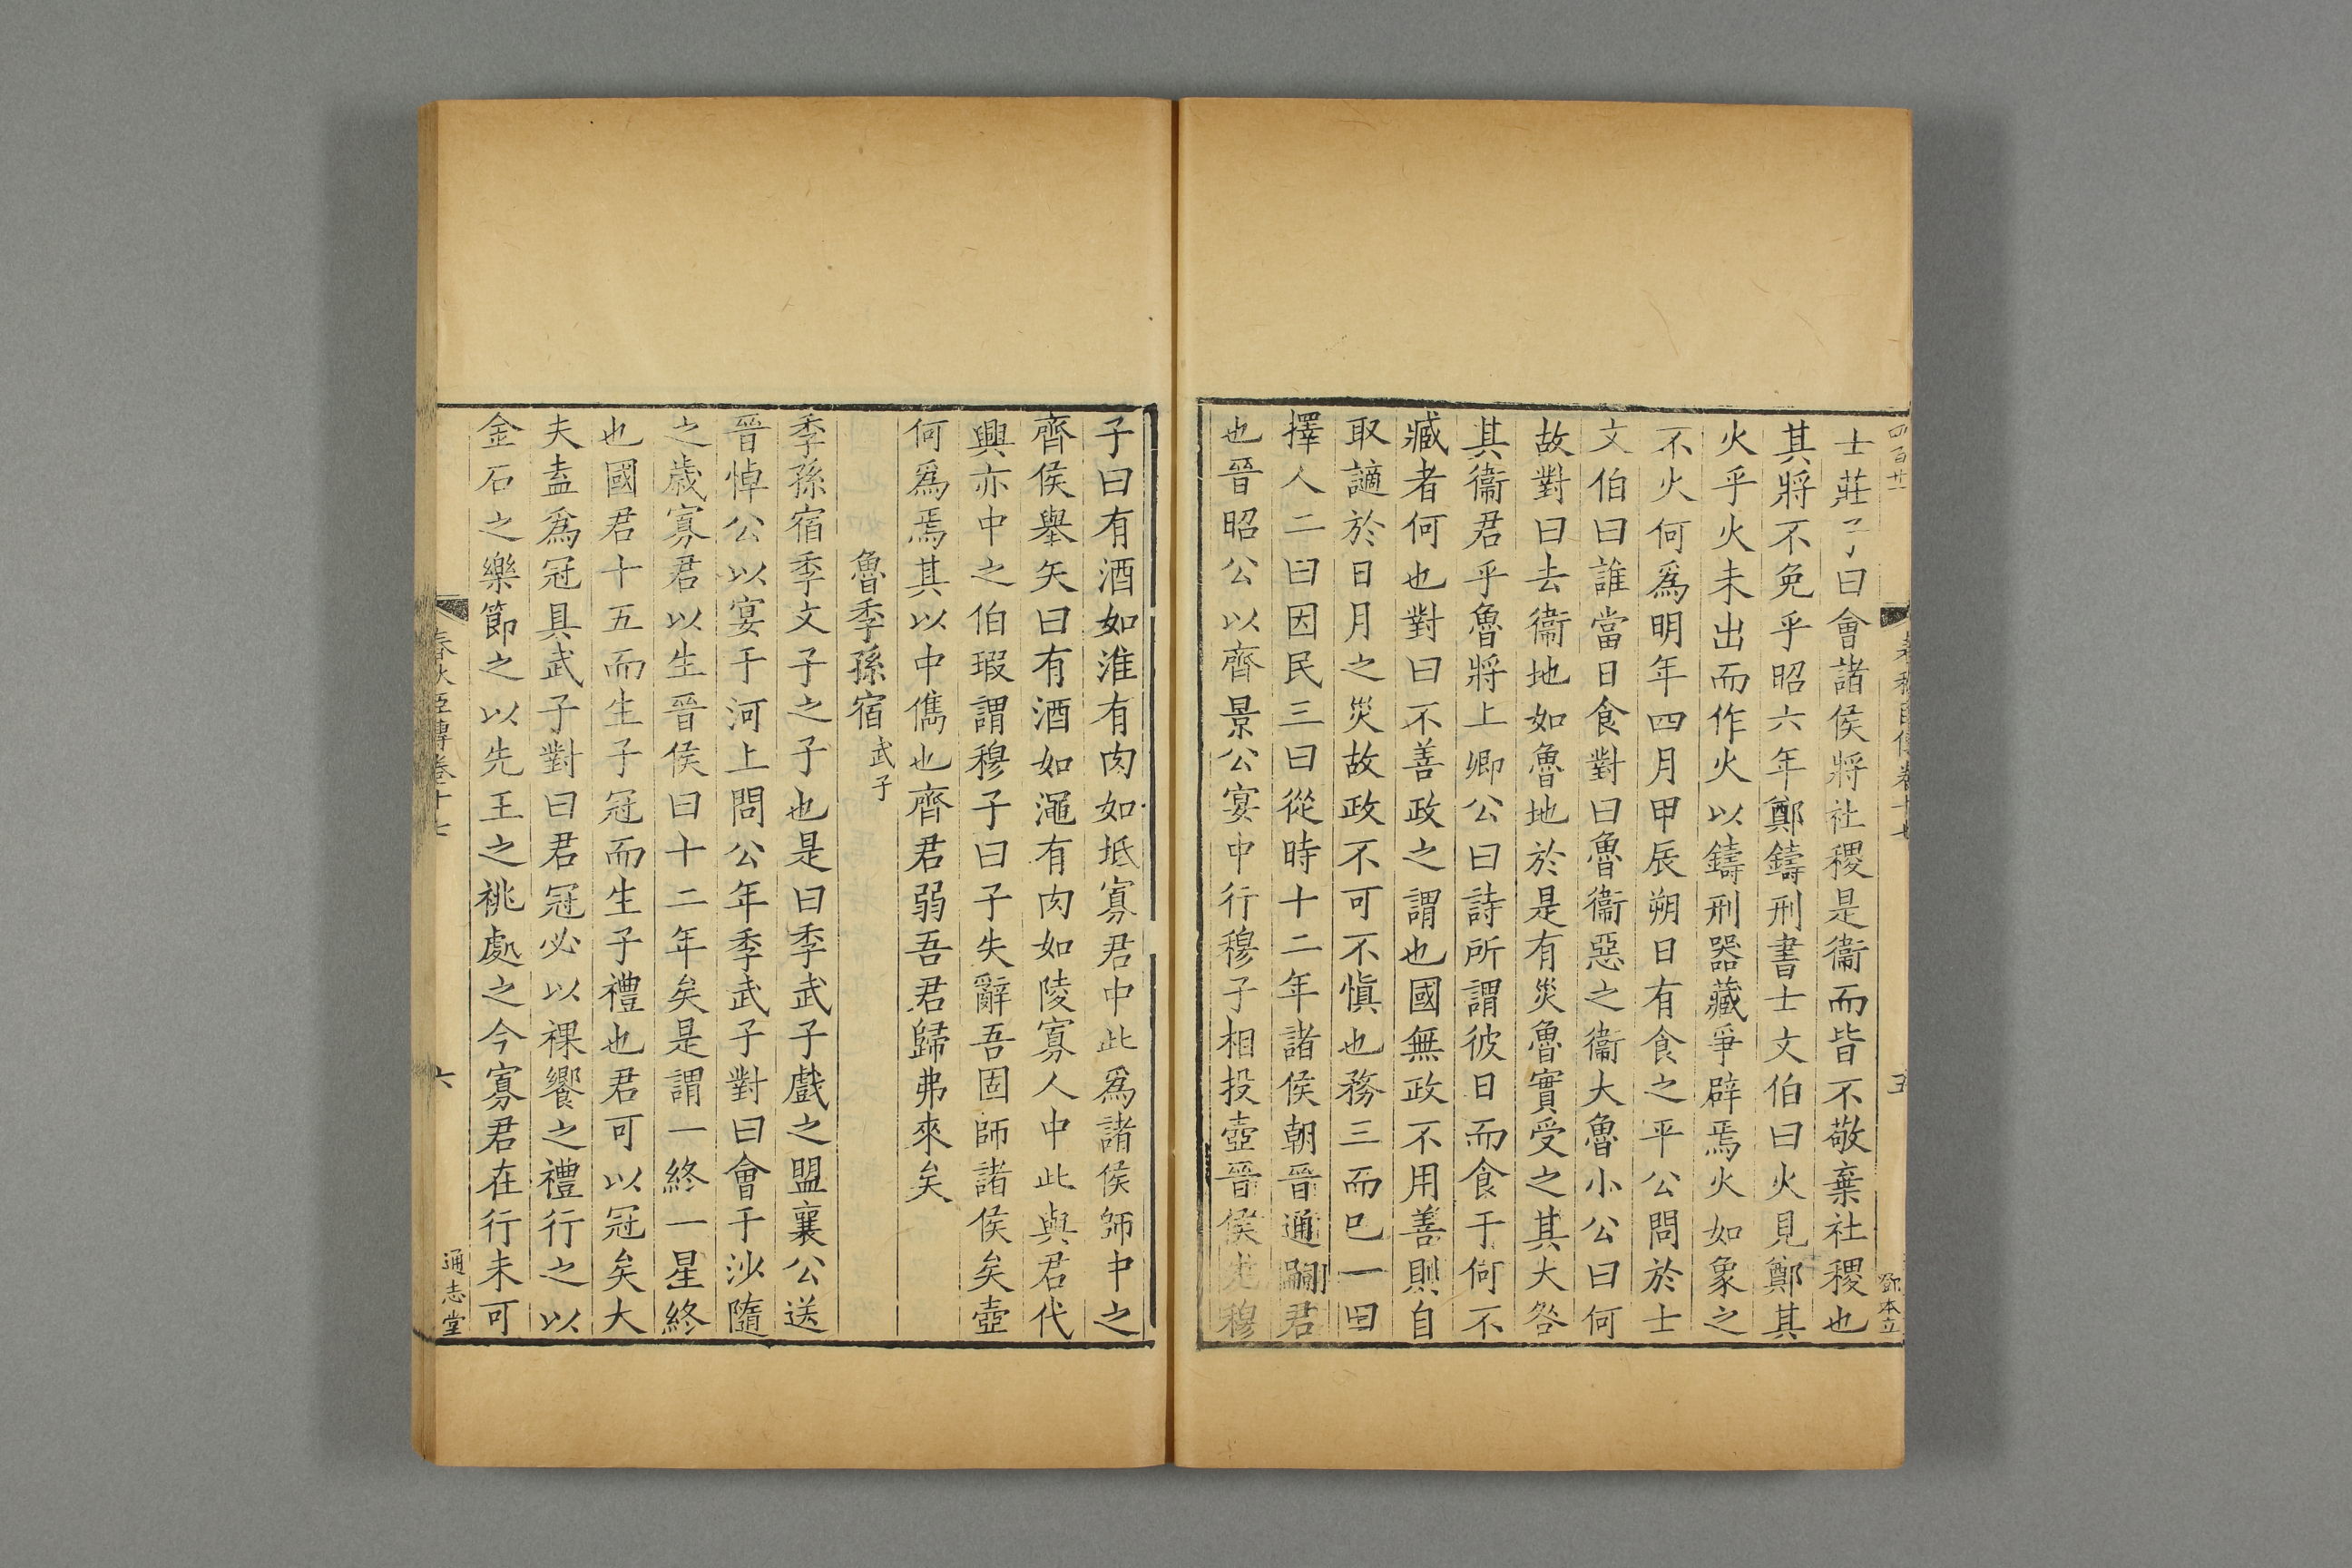 四百廿
春秋臣傳卷十七
五
鄧本立
士莊子曰會諸侯將社稷是衞而皆不敬棄社稷也
其將不免乎昭六年鄭鑄刑書士文伯曰火見鄭其
火乎火未出而作火以鑄刑器藏爭辟焉火如象之
不火何爲明年四月甲辰朔日有食之平公問於士
文伯曰誰當日食對曰魯衞惡之衞大魯小公曰何
故對曰去衞地如魯地於是有災魯實受之其大咎
其衞君乎魯將上卿公曰詩所謂彼日而食于何不
臧者何也對曰不善政之謂也國無政不用善則自
取讁於日月之災故政不可不愼也務三而已一曰
擇人二曰因民三曰從時十二年諸侯朝晉通嗣君
也晉昭公以齊景公宴中行穆子相投壺晉侯先穆
子曰有酒如淮有肉如坻寡君中此爲諸侯師中之
齊侯舉矢曰有酒如澠有肉如陵寡人中此與君代
興亦中之伯瑕謂穆子曰子失辭吾固師諸侯矣壺
何爲焉其以中儁也齊君弱吾君歸弗來矣
魯季孫宿武子
季孫宿季文子之子也是曰季武子戲之盟襄公送
晉悼公以宴于河上問公年季武子對曰會于沙隨
之歲寡君以生晉侯曰十二年矣是謂一終一星終
也國君十五而生子冠而生子禮也君可以冠矣大
夫盍爲冠具武子對曰君冠必以祼饗之禮行之以
金石之樂節之以先王之祧處之今寡君在行未可
春秋臣傳卷十七
六
通志堂